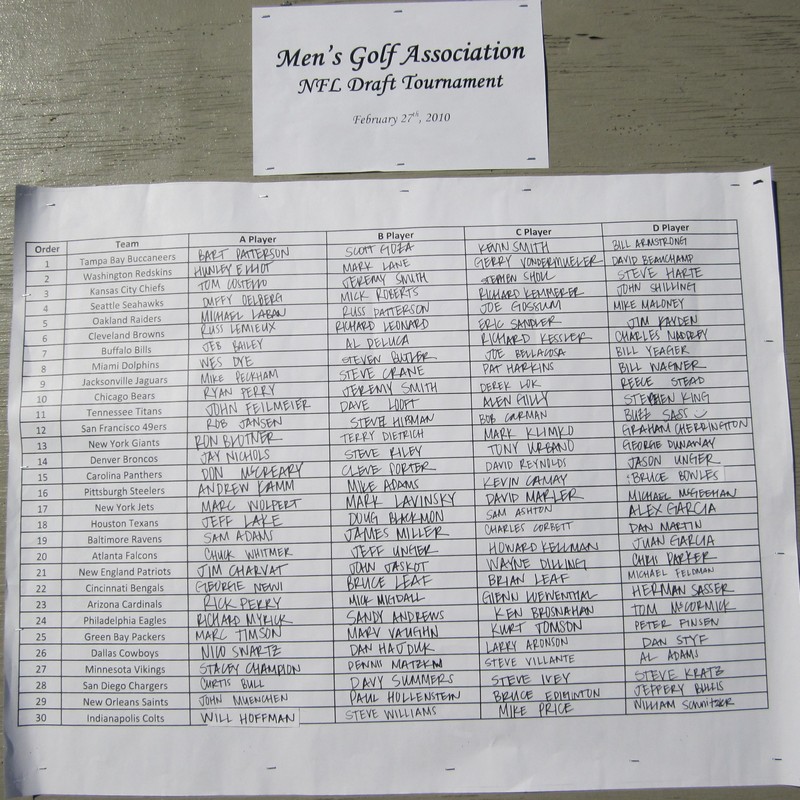 Men's Golf Association
NFL Draft Tournament
February 27th, 2010
Order Team A Player B Player C Player D Player
1 Tampa Bay Buccaneers BART PATTERSON SCOTT GOZA KEVIN SMITH BILL ARMSTRONG
2 Washington Redskins HUNLEY ELLIOT MARK LANE GERRY VONDERMUELER DAVID BEAUCHAMP
3 Kansas City Chiefs TOM COSTELLO JEREMY SMITH STEPHEN SHOLL STEVE HARTE
4 Seattle Seahawks DUFFY OELBERG MICK ROBERTS RICHARD KEMMERER JOHN SHILLING
5 Oakland Raiders MICHAEL LABAN RUSS PATTERSON JOE GOSSUM MIKE MALONEY
6 Cleveland Browns RUSS LEMIEUX RICHARD LEONARD ERIC SANDLER JIM KAYDEN
7 Buffalo Bills JEB BAILEY AL DELUCA RICHARD KESSLER CHARLES
8 Miami Dolphins WES DYE STEVEN BUTLER JOE BELLACOSA BILL YEAGER
9 Jacksonville Jaguars MIKE PECKHAM STEVE CRANE PAT HARKINS BILL WAGNER
10 Chicago Bears RYAN PERRY JEREMY SMITH DEREK LOK REECE STEAD
11 Tennessee Titans JOHN FEILMEIER DAVE LOOFT ALEN GILLY STEPHEN KING
12 San Francisco 49ers ROB JANSEN STEVE HIPMAN BOB CARMAN BUZZ SASS
13 New York Giants RON BLOTNER TERRY DIETRICH MARK KLIMKO GRAHAM CHERRINGTON
14 Denver Broncos JAY NICHOLS STEVE RILEY TONY URBANO GEORGE DUNAWAY
15 Carolina Panthers DON MCCREARY CLEVE PORTER DAVID REYNOLDS JASON UNGER
16 Pittsburgh Steelers ANDREW KAMM MIKE ADAMS KEVIN CAMAY BRUCE BOWLES
17 New York Jets MARC WOLPERT MARK LAVINSKY DAVID MARLER MICHAEL MCGEEHAN
18 Houston Texans JEFF LAKE DOUG BLACKMON SAM ASHTON ALEX GARCIA
19 Baltimore Ravens SAM ADAMS JAMES MILLER CHARLES CORBETT DAN MARTIN
20 Atlanta Falcons CHUCK WHITMER JEFF UNGER HOWARD KELLMAN JUAN GARCIA
21 New England Patriots JIM CHARVAT JOHN JASKOT WAYNE DILLING CHRIS PARKER
22 Cincinnati Bengals GEORGIE NEWI BRUCE LEAF BRIAN LEAF MICHAEL FELDMAN
23 Arizona Cardinals RICK PERRY MICK MIGDALL GLENN LOEWENTHAL HERMAN SASSER
24 Philadelphia Eagles RICHARD MYRICK SANDY ANDREWS KEN BROSNAHAN TOM McCORMICK
25 Green Bay Packers MARC TIMSON MARV VAUGHN KURT TOMSON PETER FINSEN
26 Dallas Cowboys NICO SWARTZ DAN HAUDUK LARRY ARONSON DAN STYF
27 Minnesota Vikings STACEY CHAMPION DENNIS STEVE VILLANTE AL ADAMS
28 San Diego Chargers CURTIS BULL DAVY SUMMERS STEVE IVEY STEVE KRATZ
29 New Orleans Saints JOHN MUENCHEN PAUL HOLLENSTEIN BRUCE JEFFERY BULLIS
30 Indianapolis Colts WILL HOFFMAN STEVE WILLIAMS MIKE PRICE WILLIAM SCHNITZER